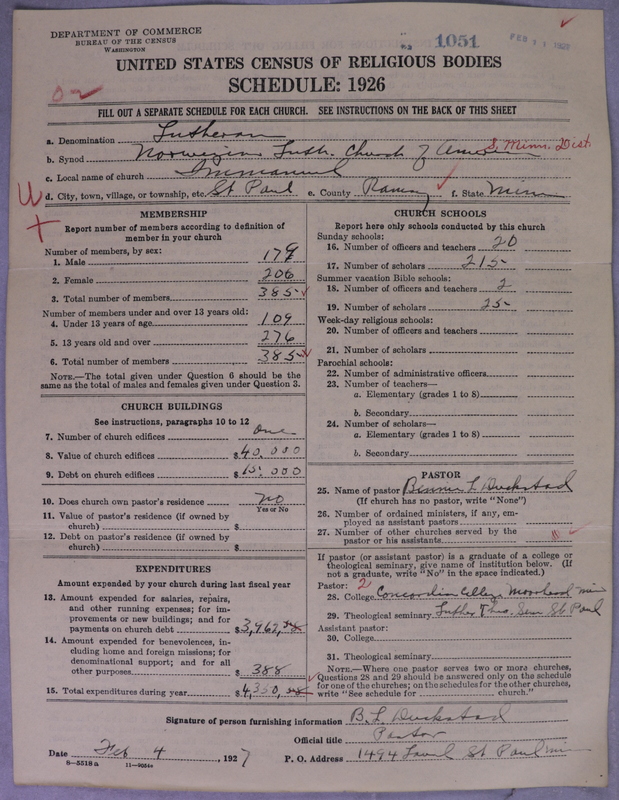 DEPARTMENT OF COMMERCE
BUREAU OF THE CENSUS
WASHINGTON
1051
UNITED STATES CENSUS OF RELIGIOUS BODIES
SCHEDULE: 1926
FILL OUT A SEPARATE SCHEDULE FOR EACH CHURCH. SEE INSTRUCTIONS ON THE BACK OF THIS SHEET
a. Denomination Lutheran
b. Synod Norwegian Luth. Church of America S. Minn. Dist.
c. Local name of church Immanuel
d. City, town, village, or township, etc. St Paul e. County Ramsey f. State Minn
MEMBERSHIP
Report number of members according to definition of
member in your church
Number of members, by sex:
1. Male 179
2. Female 206
3. Total number of members 385
Number of members under and over 13 years old:
4. Under 13 years of age 109
5. 13 years old and over 276
6. Total number of members 385
NOTE.—The total given under Question 6 should be the
same as the total of males and females given under Question 3.
CHURCH BUILDINGS
See instructions, paragraphs 10 to 12
7. Number of church edifices one
8. Value of church edifices $40,000
9. Debt on church edifices $15,000
10. Does church own pastor's residence No
Yes or No
11. Value of pastor's residence (if owned by
church) $
12. Debt on pastor's residence (if owned by
church) $
EXPENDITURES
Amount expended by your church during last fiscal year
13. Amount expended for salaries, repairs,
and other running expenses; for im-
provements or new buildings; and for
payments on church debt $3,962
14. Amount expended for benevolences, in-
cluding home and foreign missions; for
denominational support; and for all
other purposes $388
15. Total expenditures during year $4,350
CHURCH SCHOOLS
Report here only schools conducted by this church
Sunday schools:
16. Number of officers and teachers 20
17. Number of scholars 215
Summer vacation Bible schools:
18. Number of officers and teachers 2
19. Number of scholars 25
Week-day religious schools:
20. Number of officers and teachers
21. Number of scholars
Parochial schools:
22. Number of administrative officers
23. Number of teachers—
a. Elementary (grades 1 to 8)
b. Secondary
24. Number of scholars—
a. Elementary (grades 1 to 8)
b. Secondary
PASTOR
25. Name of pastor L. Duckstad
(If church has no pastor, write "None")
26. Number of ordained ministers, if any, em-
ployed as assistant pastors
27. Number of other churches served by the
pastor or his assistants
If pastor (or assistant pastor) is a graduate of a college or
theological seminary, give name of institution below. (If
not a graduate, write "No" in the space indicated.)
Pastor: 2
28. College Concordia College Moorhead Minn
29. Theological seminary Luther Theo. Sem St. Paul
Assistant pastor:
30. College
31. Theological seminary
NOTE.—Where one pastor serves two or more churches,
Questions 28 and 29 should be answered only on the schedule
for one of the churches; on the schedules for the other churches,
write "See schedule for church."
Signature of person furnishing information B. L. Duckstad
Official title Pastor
Date Feb 4, 1927 P. O. Address 1494 St Paul Minn
8-5518 a